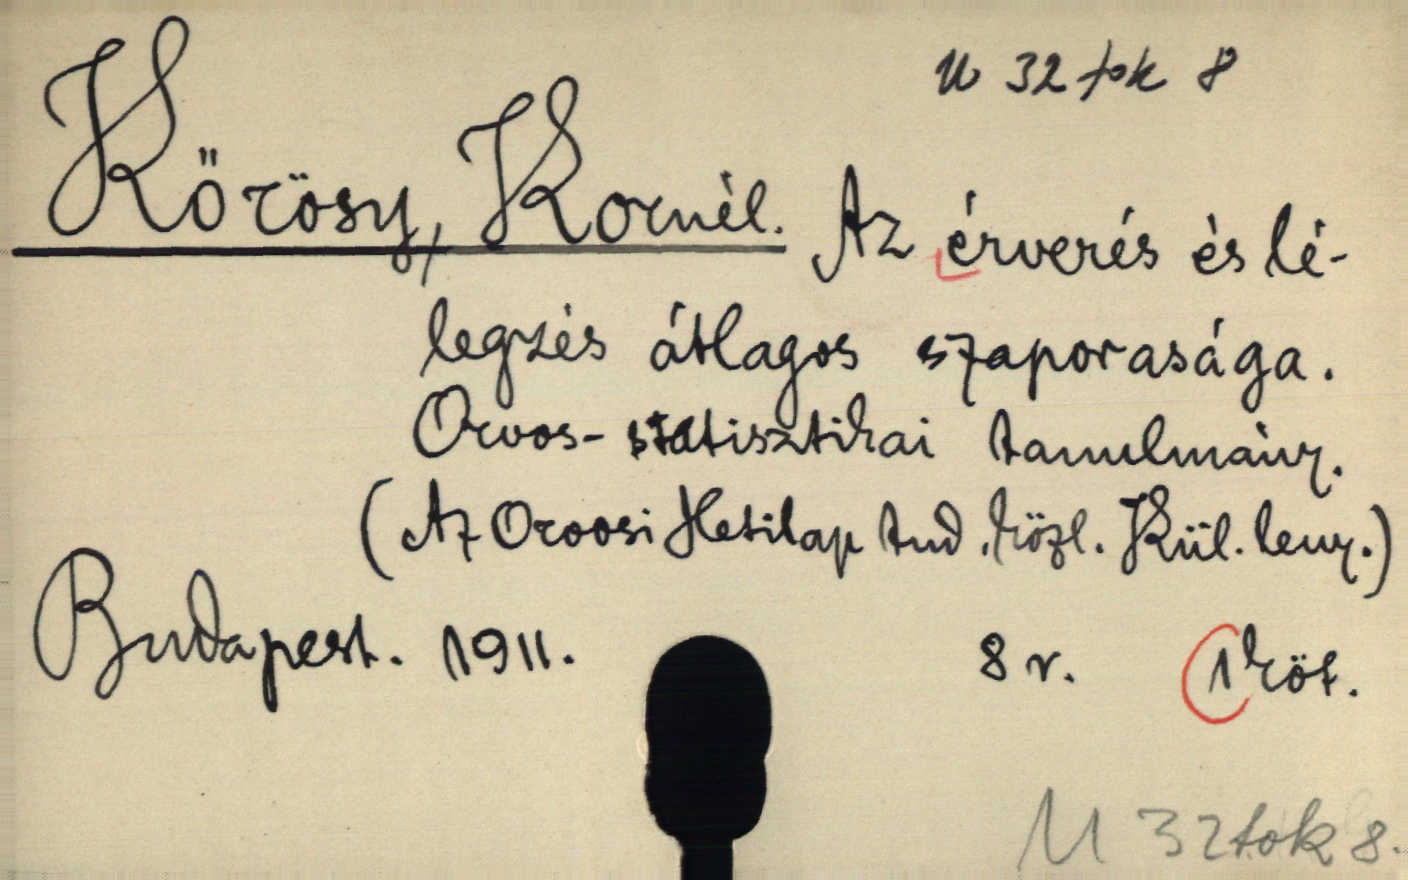 U 32 tok 8
Kőrösy, Kornél. Az érverés és lé-
legzés átlagos szaporasága.
Orvos-statisztikai tanulmány.
(Az Orvosi Hetilap tud. közl. Kül. leny.)
Budapest. 1911. 8 r. 1 köt.
U 32 tok 8.